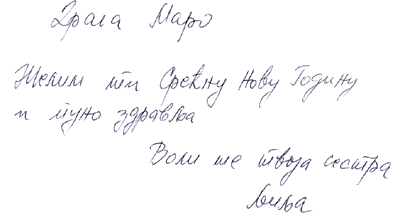 Драга Маро
Желим ти Срећну Нову Годину
и пуно здравља
Воли те твоја сестра